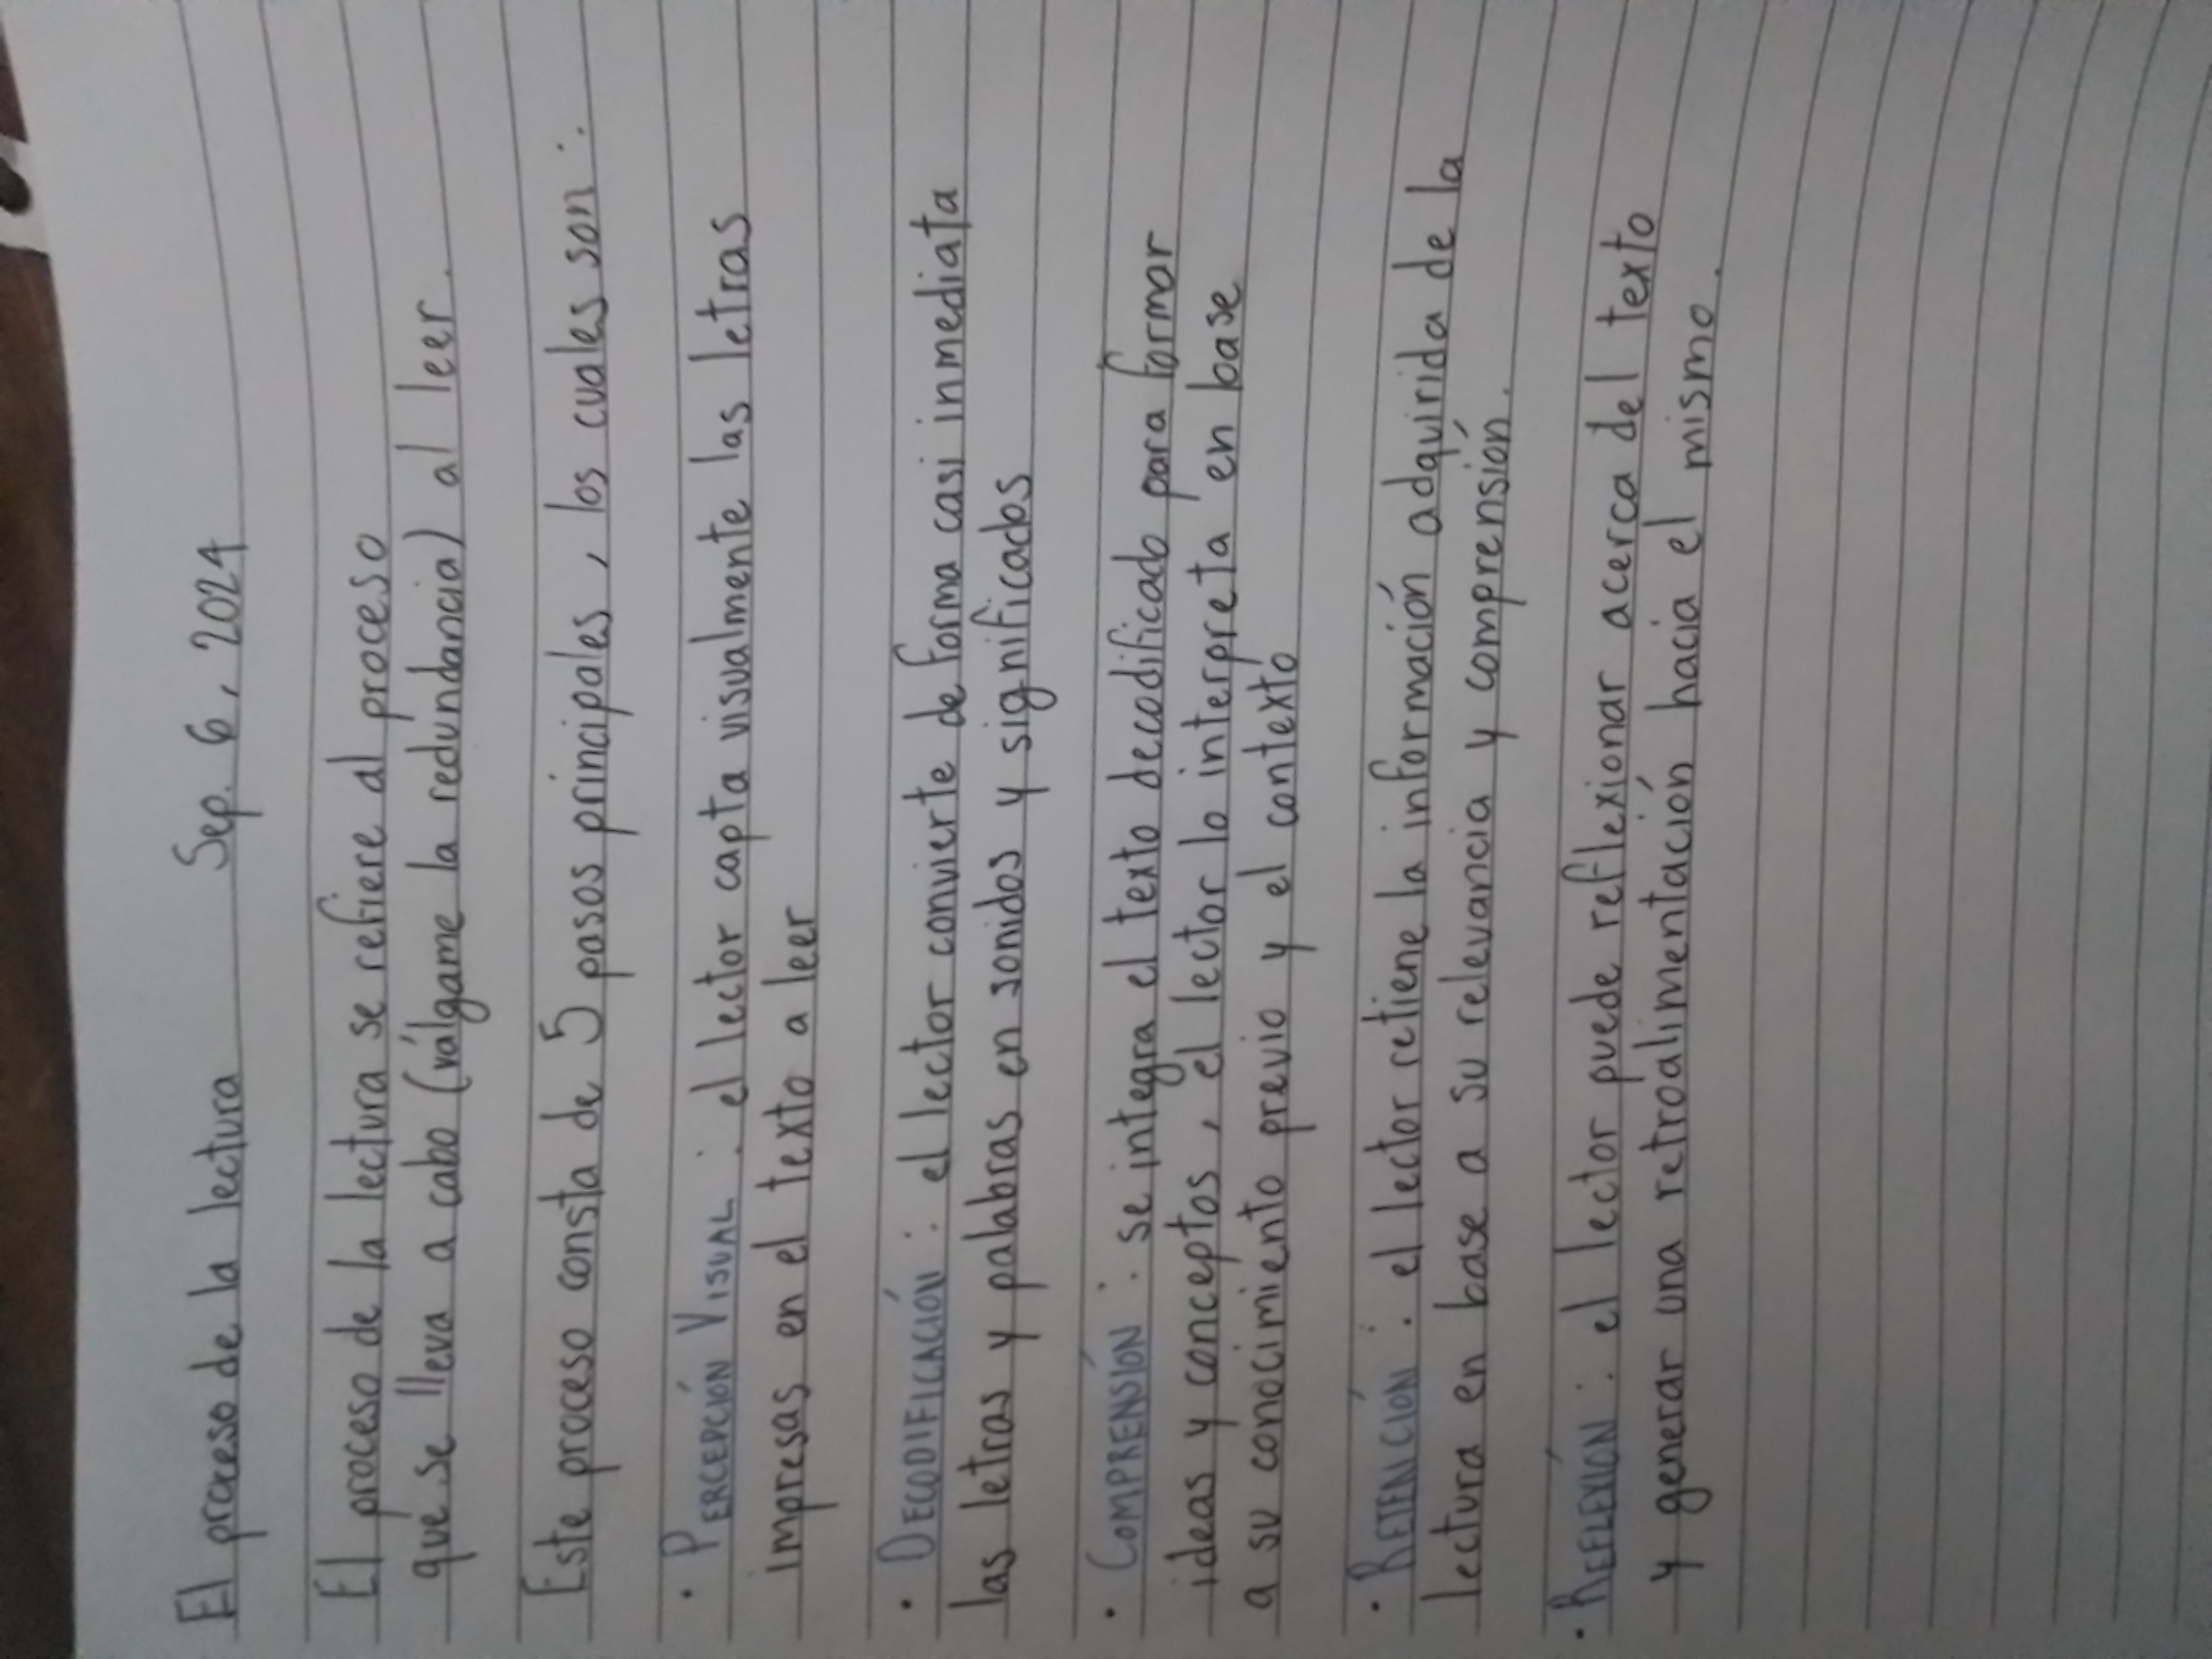 El proceso de la lectura Sep. 6, 2024
El proceso de la lectura se refiere al proceso
que se lleva a cabo (válgame la redundancia) al leer.
Este proceso consta de 5 pasos principales, los cuales son:
· PERCEPCIÓN VISUAL: el lector capta visualmente las letras
impresas en el texto a leer
· DECODIFICACIÓN: el lector convierte de forma casi inmediata
las letras y palabras en sonidos y significados
· COMPRENSIÓN: se integra el texto decodificado para formar
ideas y conceptos, el lector lo interpreta en base
a su conocimiento previo y el contexto
· RETENCIÓN: el lector retiene la información adquirida de la
lectura en base a su relevancia y comprensión.
· REFLEXIÓN: el lector puede reflexionar acerca del texto
y generar una retroalimentación hacia el mismo.